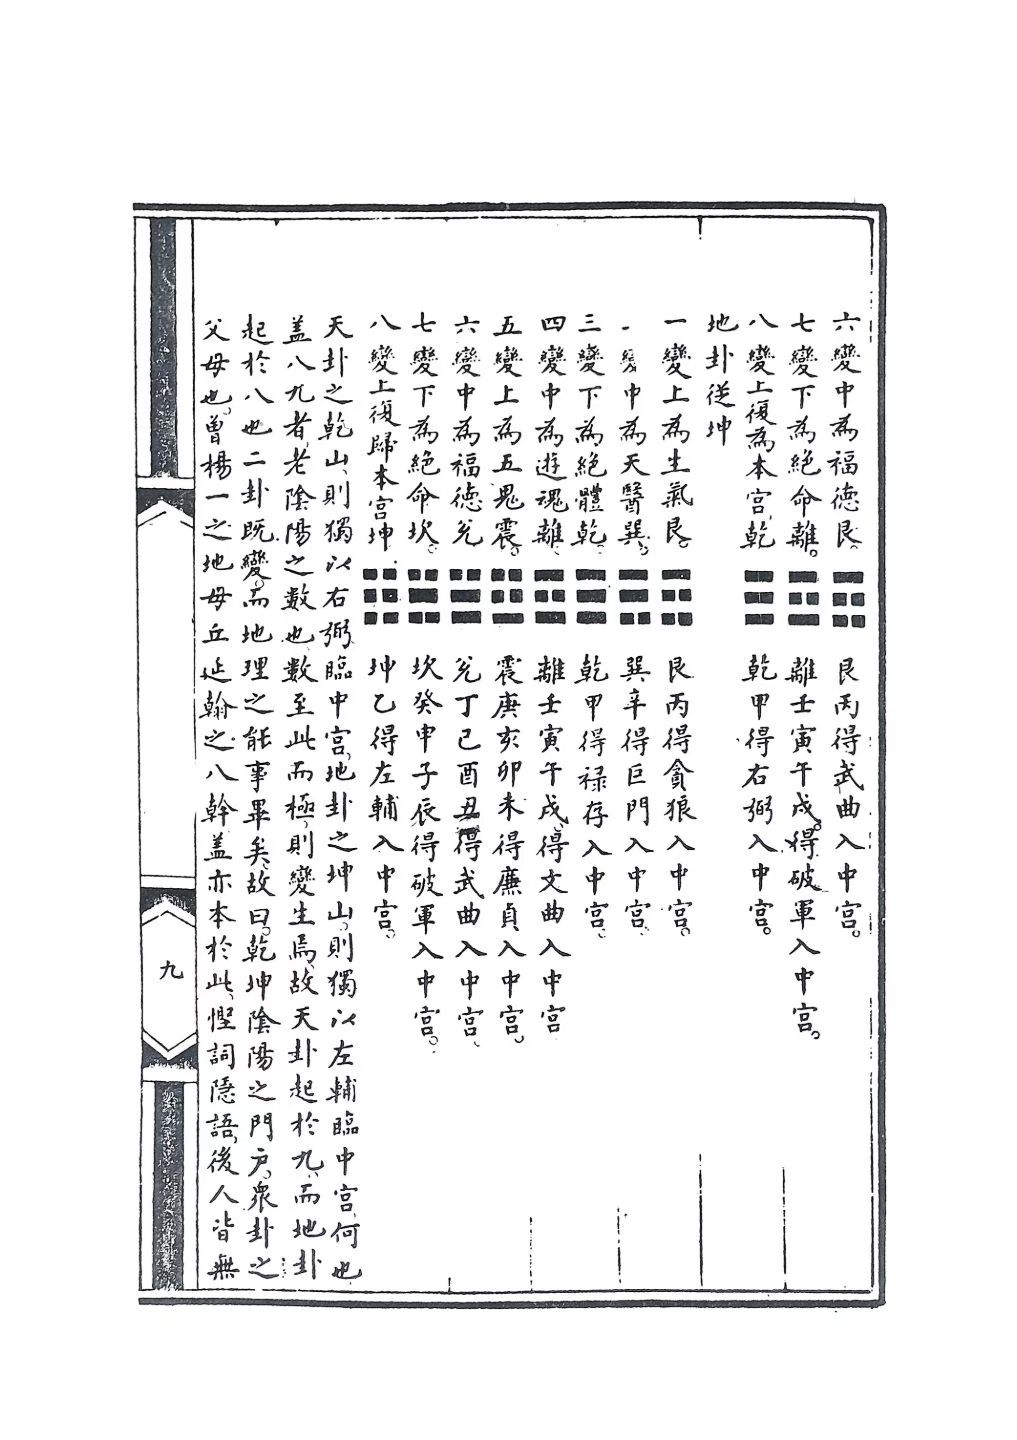 六變中為福德艮。☶艮丙得武曲入中宮。
七變下為絕命離。☲離壬寅午戌。得破軍入中宮。
八變上復為本宮乾☰乾甲得右弼入中宮。
地卦從坤
一變上為生氣艮。☶艮丙得貪狼入中宮。
變中為天醫巽。☴巽辛得巨門入中宮、
三變下為絕體乾、☰乾甲得祿存入中宮、
四變中為遊魂離、☲離壬寅午戌、得文曲入中宮
五變上為五鬼震。☳震庚亥卯未得廉貞入中宮。
六變中為福德兌☱兌丁己酉丑得武曲入中宮、
七變下為絕命坎。☵坎癸申子辰得破軍入中宮。
八變上復歸本宮坤☷坤乙得左輔入中宮。
天卦之乾山、則獨以右弼臨中宮、地卦之坤山、則獨以左輔臨中宮、何也
盖八九者、老陰陽之數也、數至此而極、則變生焉、故天卦起於九、而地卦
起於八也二卦既變、而地理之能事畢矣、故曰、乾坤陰陽之門户、衆卦之
父母也、曾楊一之地母丘延翰之八幹盖亦本於此、慳詞隱語、後人皆無
九